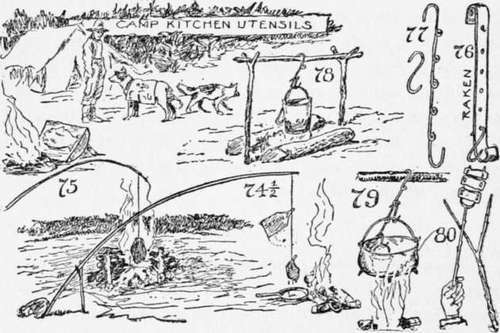 CAMP KITCHEN UTENSILS
77
76
78
RAKEN
75
74½
79
80